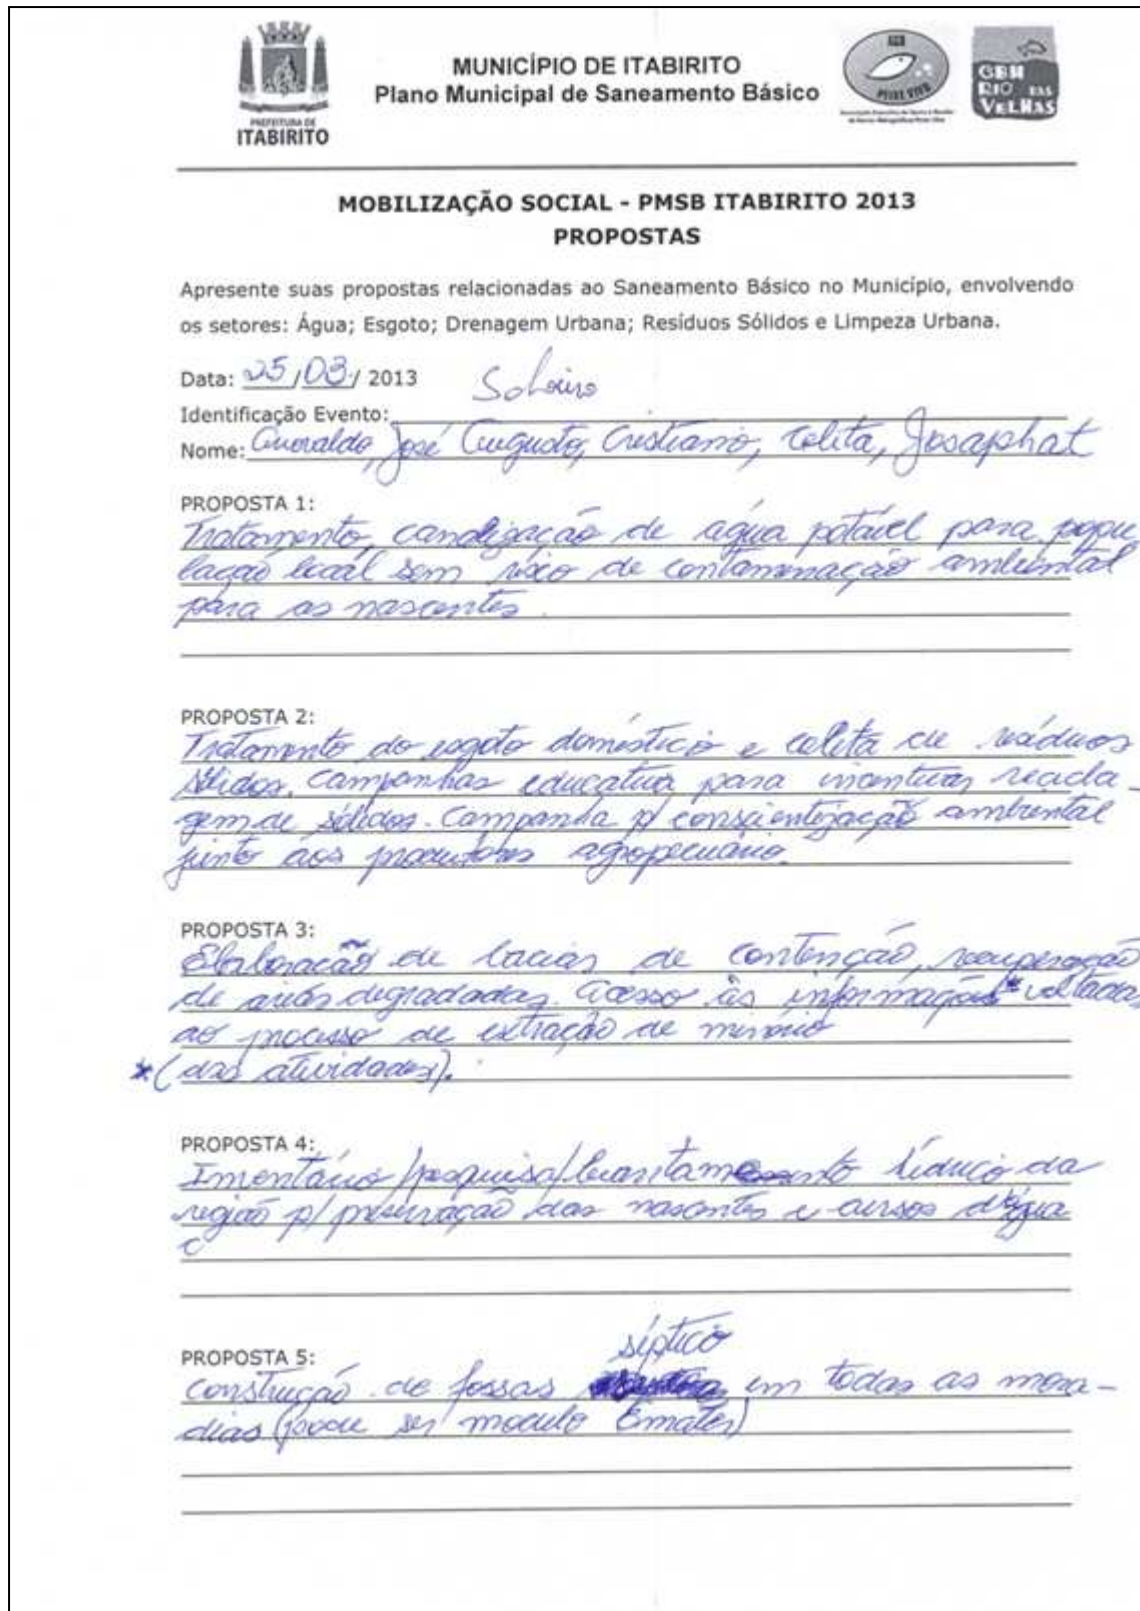 PREFEITURA DE
ITABIRITO
MUNICÍPIO DE ITABIRITO
Plano Municipal de Saneamento Básico
PEIXE VIVO
CBH
RIO DAS
VELHAS
MOBILIZAÇÃO SOCIAL - PMSB ITABIRITO 2013
PROPOSTAS
Apresente suas propostas relacionadas ao Saneamento Básico no Município, envolvendo
os setores: Água; Esgoto; Drenagem Urbana; Resíduos Sólidos e Limpeza Urbana.
Data: 25/03/ 2013
Identificação Evento:
Nome: José Augusto, Cristiano, Josaphat
PROPOSTA 1:
Tratamento, canalização de água potável para popu
lação local sem risco de contaminação ambiental
para as nascentes.
PROPOSTA 2:
Tratamento do esgoto doméstico e coleta de resíduos
sólidos. Campanhas educativa para incentivar recicla-
gem de sólidos. Campanha p/ conscientização ambiental
junto aos produtores agropecuário.
PROPOSTA 3:
Elaboração de bacias de contenção, recuperação
de areás degradadas. Acesso às informações* voltadas
ao processo de extração de minério
*(das atividades).
PROPOSTA 4:
Inventário/pesquisa/levantamento da
região p/ preservação das nascentes e cursos d'água
PROPOSTA 5:
séptico
Construção de fossas em todas as mora-
dias (pode ser modulo Emater)